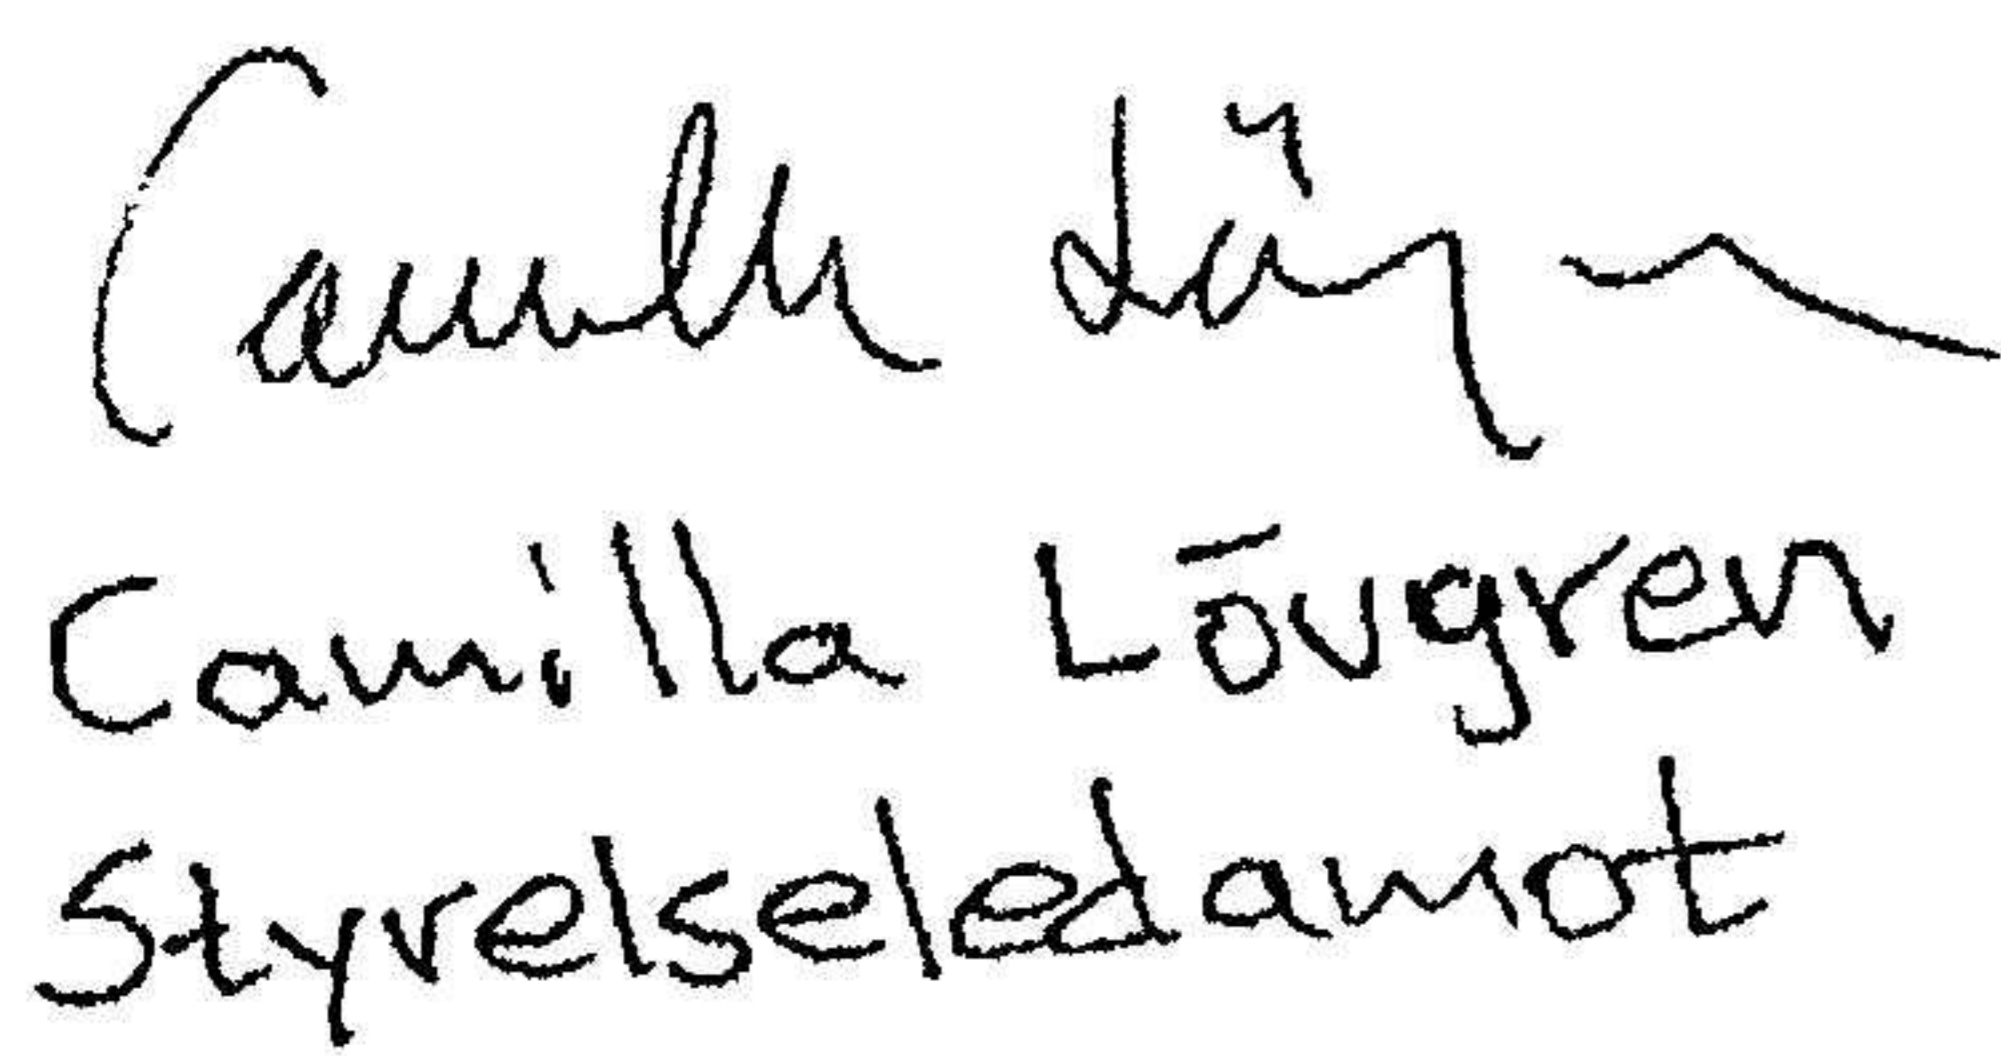 Camilla Lövgren
Camilla Lövgren
Styrelseledamot